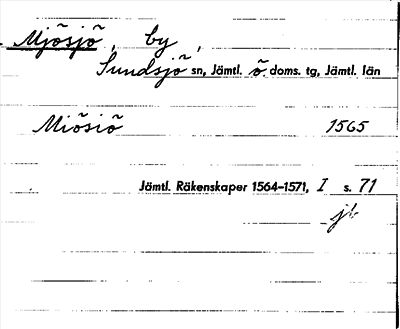 Mjösjö, by,
Sundsjö sn, Jämtl. ö. doms. tg, Jämtl. län
Miösiö 1565
Jämtl. Räkenskaper 1564–1571, I s. 71
jb